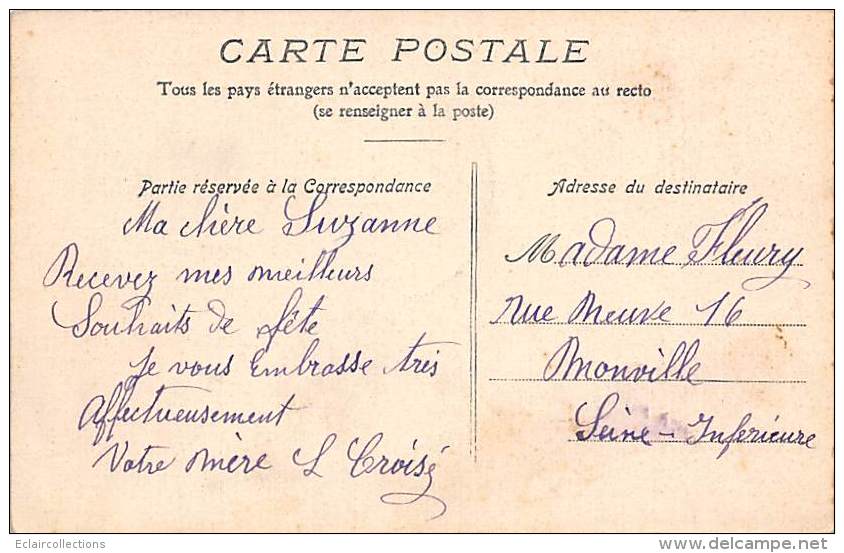 CARTE POSTALE
Tous les pays étrangers n'acceptent pas la correspondance au recto
(se renseigner à la poste)
Partie réservée à la Correspondance
Ma chère Suzanne
Recevez mes meilleurs
Souhaits de fête
Je vous Embrasse très
Affectueusement
Votre mère L Croisé
Adresse du destinataire
Madame Fleury
rue Neuve 16
Monville
Seine-Inférieure
Eclaircollections
www.delcampe.net